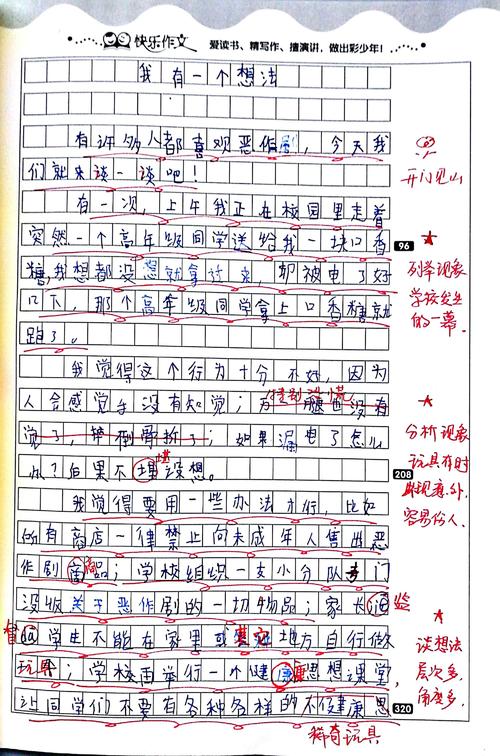 快乐作文 爱读书、精写作、擅演讲,做出彩少年!
我有一个想法
有许多人都喜欢恶作剧,今天我
开门见山
们就来谈一谈吧!
有一次,上午我正在校园里走着
突然一个高年级同学送给我一块口香
96
糖,我想都没想就拿过来,却被电了好
列举现象
学校发生
的一幕.
几下,那个高年级同学拿上口香糖就
跑了。
我觉得这个行为十分不好,因为
人会感觉手没有知觉;
特别恐慌
腿也没有
觉了,摔倒骨折了;如果漏电了怎么
分析现象
玩具有时
出现意外,
容易伤人.
办?后果不堪设想。
208
我觉得要用一些办法才行,比如
所有商店一律禁止向未成年人售出恶
作剧商品;学校组织一支小分队专门
没收关于恶作剧的一切物品;家长
监
督
学生不能在家里或其它地方自行做
谈想法
层次多,
角度多.
玩具;学校再举行一个健康思想课堂,
让同学们不要有各种各样的不健康思
320
稀奇玩具